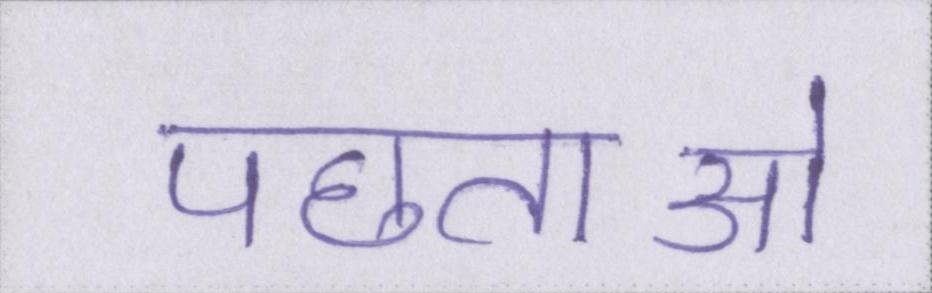 पछताओ